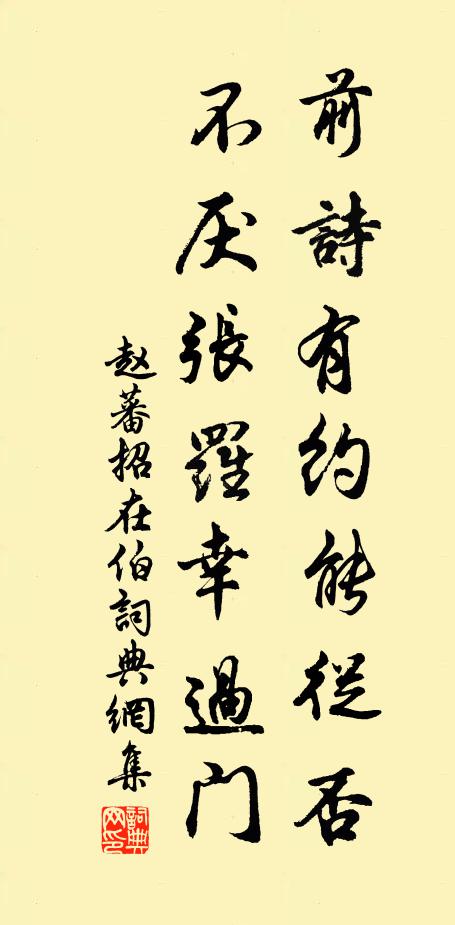 前詩有約能從否
不厌張羅幸過门
赵蕃招在伯詞典網集
詞典网印